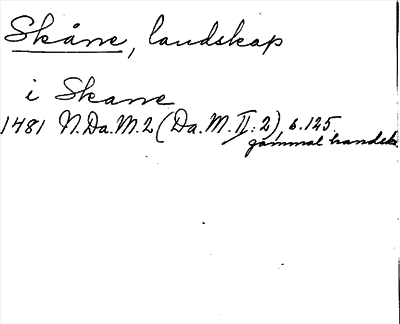 Skåne, landskap
i Skane
1481 N.Da.M.2 (Da.M. II:2), s.125.
gammal handskr